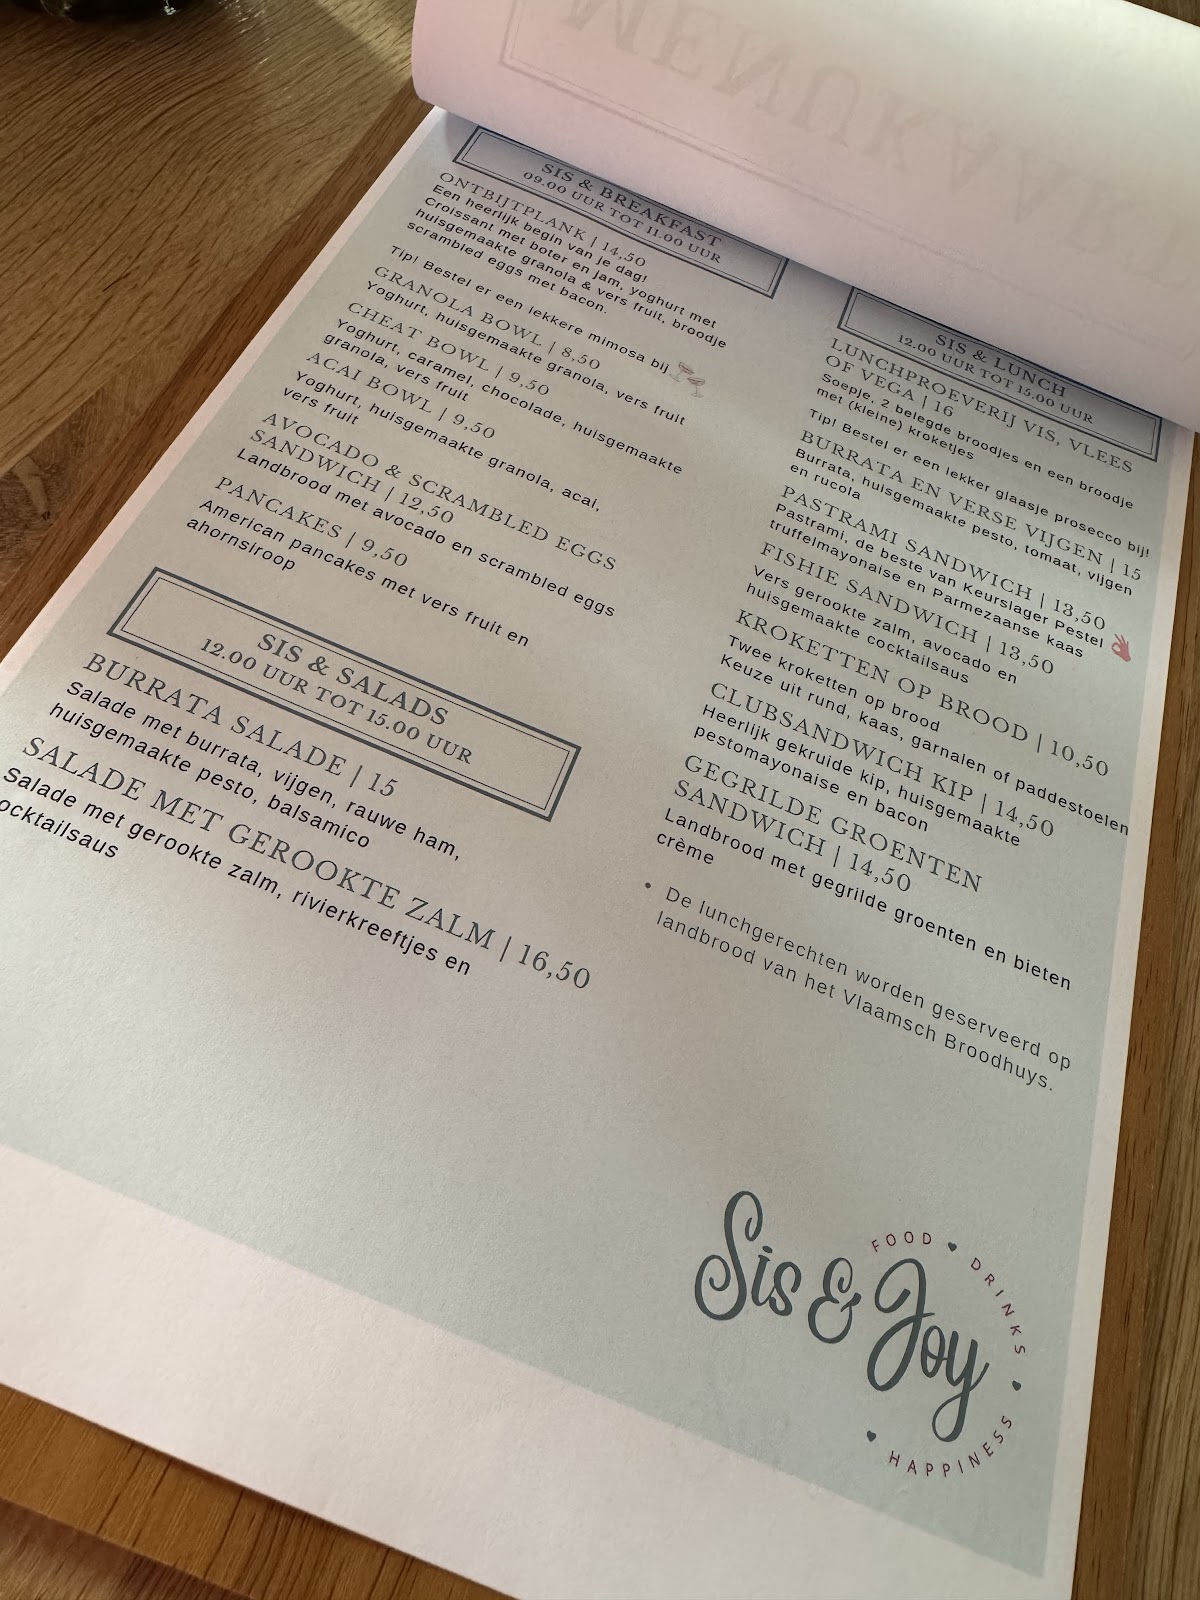 MENUKAART
SIS & BREAKFAST
09.00 UUR TOT 11.00 UUR
ONTBIJTPLANK | 14,50
Een heerlijk begin van je dag!
Croissant met boter en jam, yoghurt met
huisgemaakte granola & vers fruit, broodje
scrambled eggs met bacon.
Tip! Bestel er een lekkere mimosa bij
GRANOLA BOWL | 8,50
Yoghurt, huisgemaakte granola, vers fruit
CHEAT BOWL | 9,50
Yoghurt, caramel, chocolade, huisgemaakte
granola, vers fruit
ACAI BOWL | 9,50
Yoghurt, huisgemaakte granola, acai,
vers fruit
AVOCADO & SCRAMBLED EGGS
SANDWICH | 12,50
Landbrood met avocado en scrambled eggs
PANCAKES | 9,50
American pancakes met vers fruit en
ahornsiroop
SIS & SALADS
12.00 UUR TOT 15.00 UUR
BURRATA SALADE | 15
Salade met burrata, vijgen, rauwe ham,
huisgemaakte pesto, balsamico
SALADE MET GEROOKTE ZALM | 16,50
Salade met gerookte zalm, rivierkreeftjes en
ocktailsaus
SIS & LUNCH
12.00 UUR TOT 15.00 UUR
LUNCHPROEVERIJ VIS, VLEES
OF VEGA | 16
Soepje, 2 belegde broodjes en een broodje
met (kleine) kroketjes
Tip! Bestel er een lekker glaasje prosecco bij!
BURRATA EN VERSE VIJGEN | 15
Burrata, huisgemaakte pesto, tomaat, vijgen
en rucola
PASTRAMI SANDWICH | 13,50
Pastrami, de beste van Keurslager Pestel 👌
truffelmayonaise en Parmezaanse kaas
FISHIE SANDWICH | 13,50
Vers gerookte zalm, avocado en
huisgemaakte cocktailsaus
KROKETTEN OP BROOD | 10,50
Twee kroketten op brood
Keuze uit rund, kaas, garnalen of paddestoelen
CLUBSANDWICH KIP | 14,50
Heerlijk gekruide kip, huisgemaakte
pestomayonaise en bacon
GEGRILDE GROENTEN
SANDWICH | 14,50
Landbrood met gegrilde groenten en bieten
crème
• De lunchgerechten worden geserveerd op
landbrood van het Vlaamsch Broodhuys.
Sis & Joy
FOOD ♥ DRINKS ♥ HAPPINESS ♥